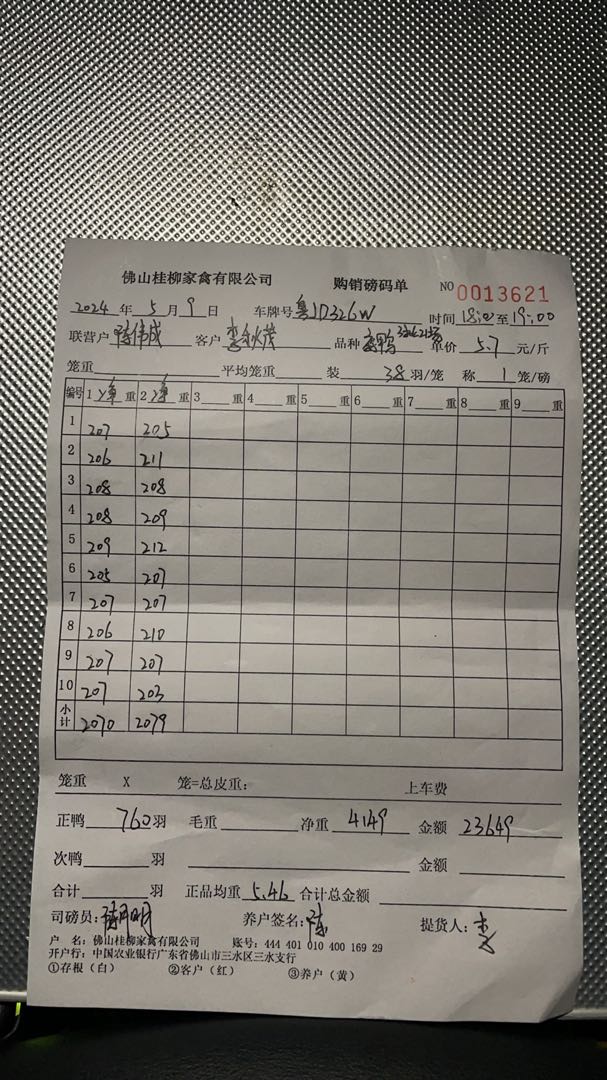 佛山桂柳家禽有限公司 购销磅码单 NO 0013621
2024 年 5 月 9 日 车牌号 粤JD326W 时间 18:00 至 19:00
联营户 伟成 客户 李 茂 品种 单价 5.7 元/斤
笼重 平均笼重 装 38 羽/笼 称 1 笼/磅
编号 1 净 重 2 净 重 3 重 4 重 5 重 6 重 7 重 8 重 9 重
1 207 205
2 206 211
3 208 208
4 208 209
5 209 212
6 205 207
7 207 207
8 206 210
9 207 207
10 207 203
小计 2070 2079
笼重 X 笼=总皮重: 上车费
正鸭 760 羽 毛重 净重 4149 金额 23649
次鸭 羽 金额
合计 羽 正品均重 5.46 合计总金额
司磅员: 明 养户签名: 陈 提货人: 李
户 名: 佛山桂柳家禽有限公司 账号: 444 401 010 400 169 29
开户行: 中国农业银行广东省佛山市三水区三水支行
①存根(白) ②客户(红) ③养户(黄)